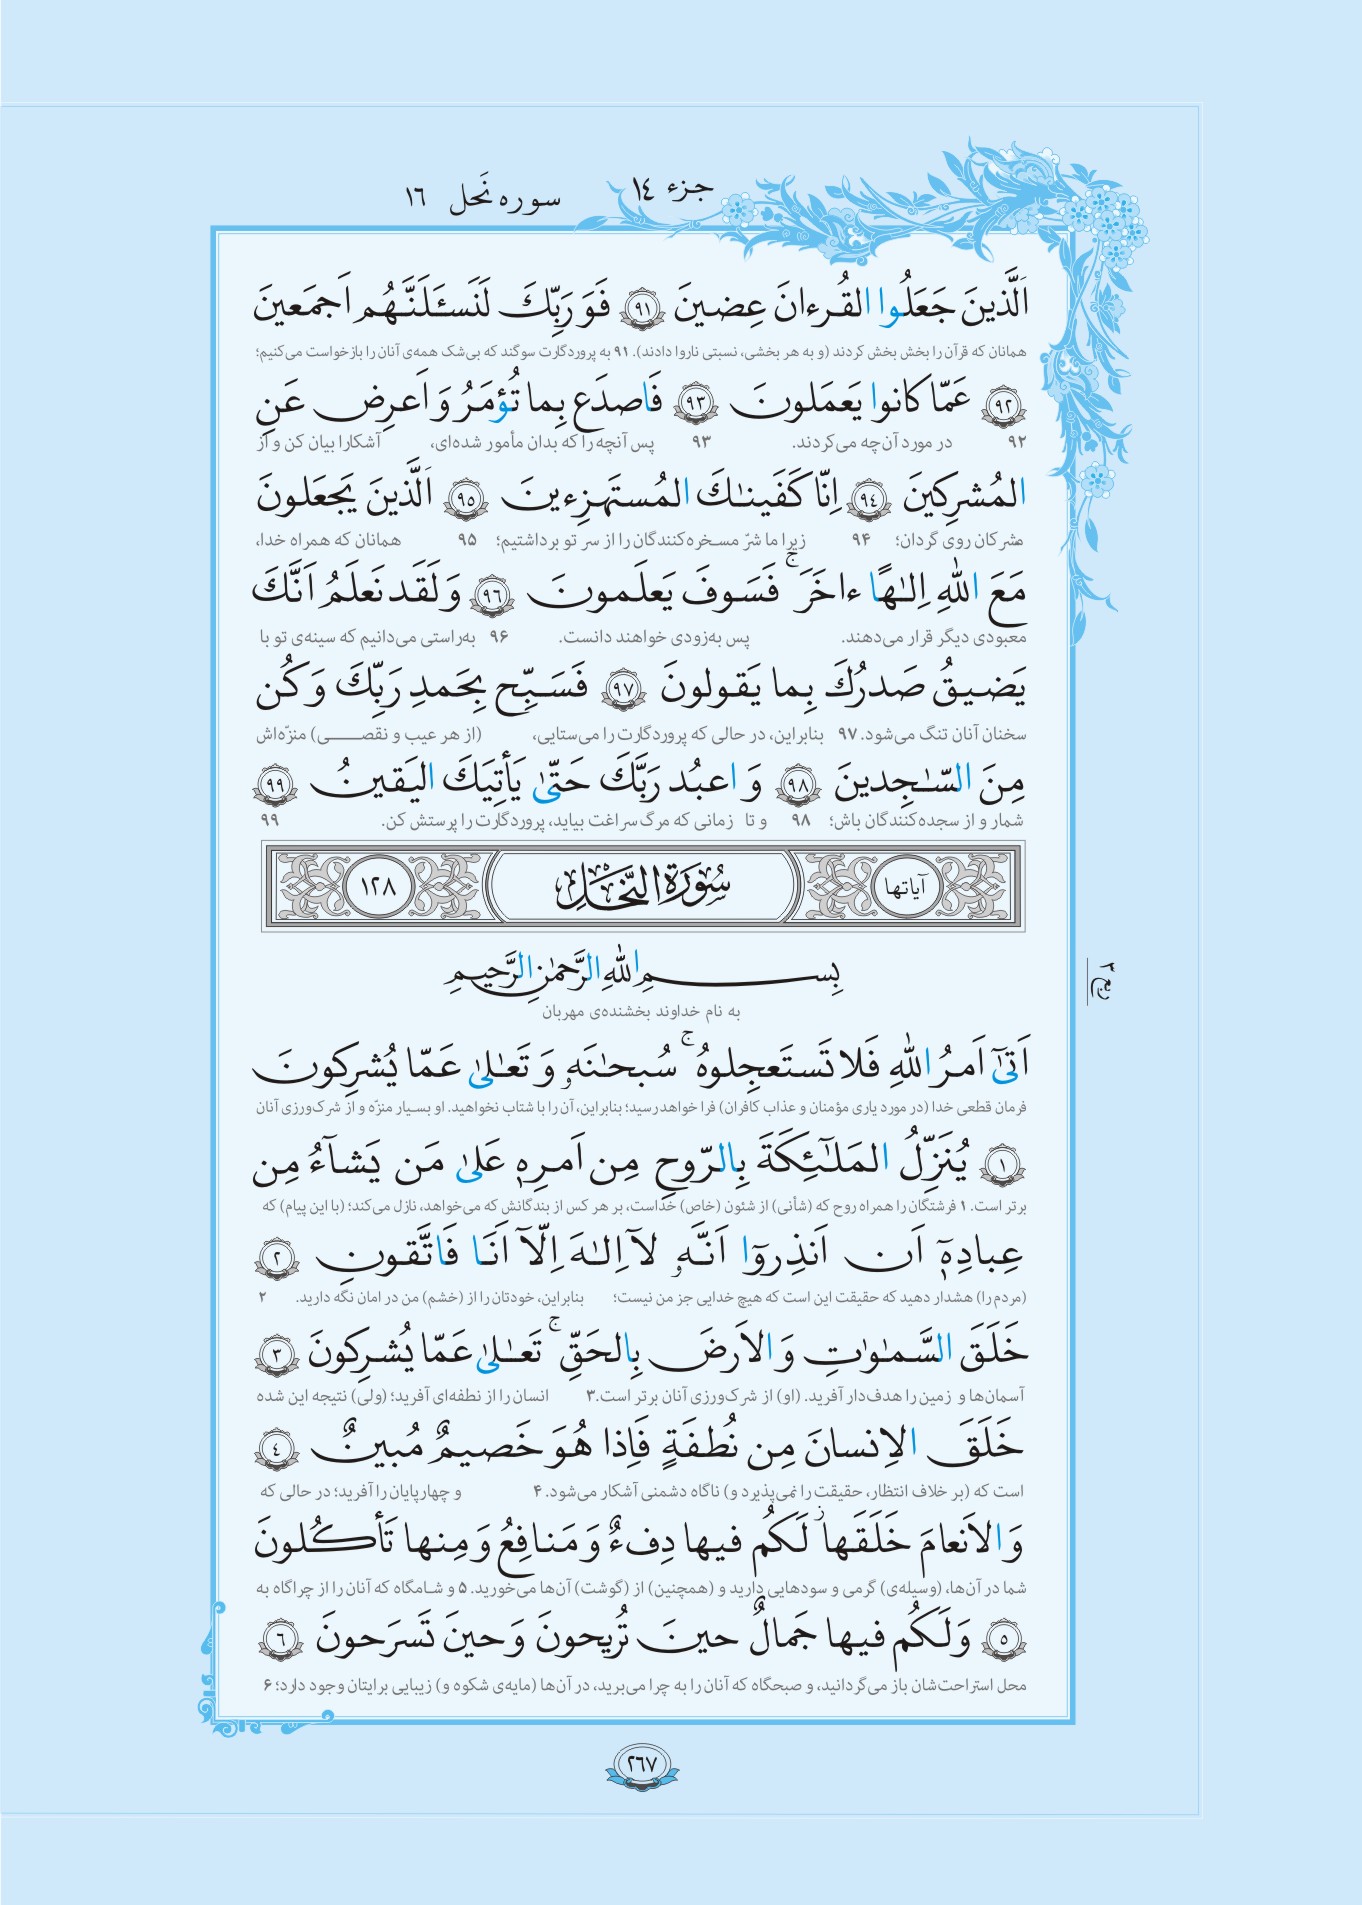 جزء ١٤
سوره نَحل ١٦
اَلَّذينَ جَعَلُوا القُرءانَ عِضينَ ٩١ فَوَرَبِّكَ لَنَسـَٔلَنَّهُم اَجمَعينَ
همانان که قرآن را بخش بخش کردند (و به هر بخشی، نسبتی ناروا دادند). ۹۱ به پروردگارت سوگند که بی‌شک همه‌ی آنان را بازخواست می‌کنیم؛
٩٢ عَمّا كانوا يَعمَلونَ ٩٣ فَاصدَع بِما تُؤمَرُ وَ اَعرِض عَنِ
۹۲ در مورد آن‌چه می‌کردند. ۹۳ پس آنچه را که بدان مأمور شده‌ای، آشکارا بیان کن و از
المُشرِكينَ ٩٤ اِنّا كَفَينٰكَ المُستَهزِءينَ ٩٥ اَلَّذينَ يَجعَلونَ
مشرکان روی گردان؛ ۹۴ زیرا ما شرّ مسخره‌کنندگان را از سر تو برداشتیم؛ ۹۵ همانان که همراه خدا،
مَعَ اللّٰهِ اِلـٰهًا ءاخَرَ ۚ فَسَوفَ يَعلَمونَ ٩٦ وَ لَقَد نَعلَمُ اَنَّكَ
معبودی دیگر قرار می‌دهند. پس به‌زودی خواهند دانست. ۹۶ به‌راستی می‌دانیم که سینه‌ی تو با
يَضيقُ صَدرُكَ بِما يَقولونَ ٩٧ فَسَبِّح بِحَمدِ رَبِّكَ وَ كُن
سخنان آنان تنگ می‌شود. ۹۷ بنابراین، در حالی که پروردگارت را می‌ستایی، (از هر عیب و نقصی) منزّه‌اش
مِنَ السّـٰجِدينَ ٩٨ وَ اعبُد رَبَّكَ حَتّىٰ يَأتِيَكَ اليَقينُ ٩٩
شمار و از سجده‌کنندگان باش؛ ۹۸ و تا زمانی که مرگ سراغت بیاید، پروردگارت را پرستش کن. ۹۹
آیاتها سُورَةُ النَّحل ١٢٨
ربع ٣
بِسمِ اللّٰهِ الرَّحمٰنِ الرَّحيمِ
به نام خداوند بخشنده‌ی مهربان
اَتىٰٓ اَمرُ اللّٰهِ فَلا تَستَعجِلوهُ ۚ سُبحـٰنَهۥ وَ تَعـٰلىٰ عَمّا يُشرِكونَ
فرمان قطعی خدا (در مورد یاری مؤمنان و عذاب کافران) فرا خواهد رسید؛ بنابراین، آن را با شتاب نخواهید. او بسیار منزّه و از شرک‌ورزی آنان
١ يُنَزِّلُ المَلـٰٓئِكَةَ بِالرّوحِ مِن اَمرِهٖ عَلىٰ مَن يَشآءُ مِن
برتر است. ۱ فرشتگان را همراه روح که (شأنی) از شئون (خاص) خداست، بر هر کس از بندگانش که می‌خواهد، نازل می‌کند؛ (با این پیام) که
عِبادِهٖٓ اَن اَنذِروٓا اَنَّهۥ لآ اِلـٰهَ اِلّآ اَنَا فَاتَّقونِ ٢
(مردم را) هشدار دهید که حقیقت این است که هیچ خدایی جز من نیست؛ بنابراین، خودتان را از (خشم) من در امان نگه دارید. ۲
خَلَقَ السَّمـٰوٰتِ وَ الاَرضَ بِالحَقِّ ۚ تَعـٰلىٰ عَمّا يُشرِكونَ ٣
آسمان‌ها و زمین را هدف‌دار آفرید. (او) از شرک‌ورزی آنان برتر است. ۳ انسان را از نطفه‌ای آفرید؛ (ولی) نتیجه این شده
خَلَقَ الاِنسانَ مِن نُطفَةٍ فَاِذا هُوَ خَصيمٌ مُبينٌ ٤
است که (بر خلاف انتظار، حقیقت را نمی‌پذیرد و) ناگاه دشمنی آشکار می‌شود. ۴ و چهارپایان را آفرید؛ در حالی که
وَ الاَنعامَ خَلَقَها ز لَكُم فيها دِفءٌ وَ مَنافِعُ وَ مِنها تَأكُلونَ
شما در آن‌ها، (وسیله‌ی) گرمی و سودهایی دارید و (همچنین) از (گوشت) آن‌ها می‌خورید. ۵ و شامگاه که آنان را از چراگاه به
٥ وَ لَكُم فيها جَمالٌ حينَ تُريحونَ وَ حينَ تَسرَحونَ ٦
محل استراحت‌شان باز می‌گردانید، و صبحگاه که آنان را به چرا می‌برید، در آن‌ها (مایه‌ی شکوه و) زیبایی برایتان وجود دارد؛ ۶
٢٦٧